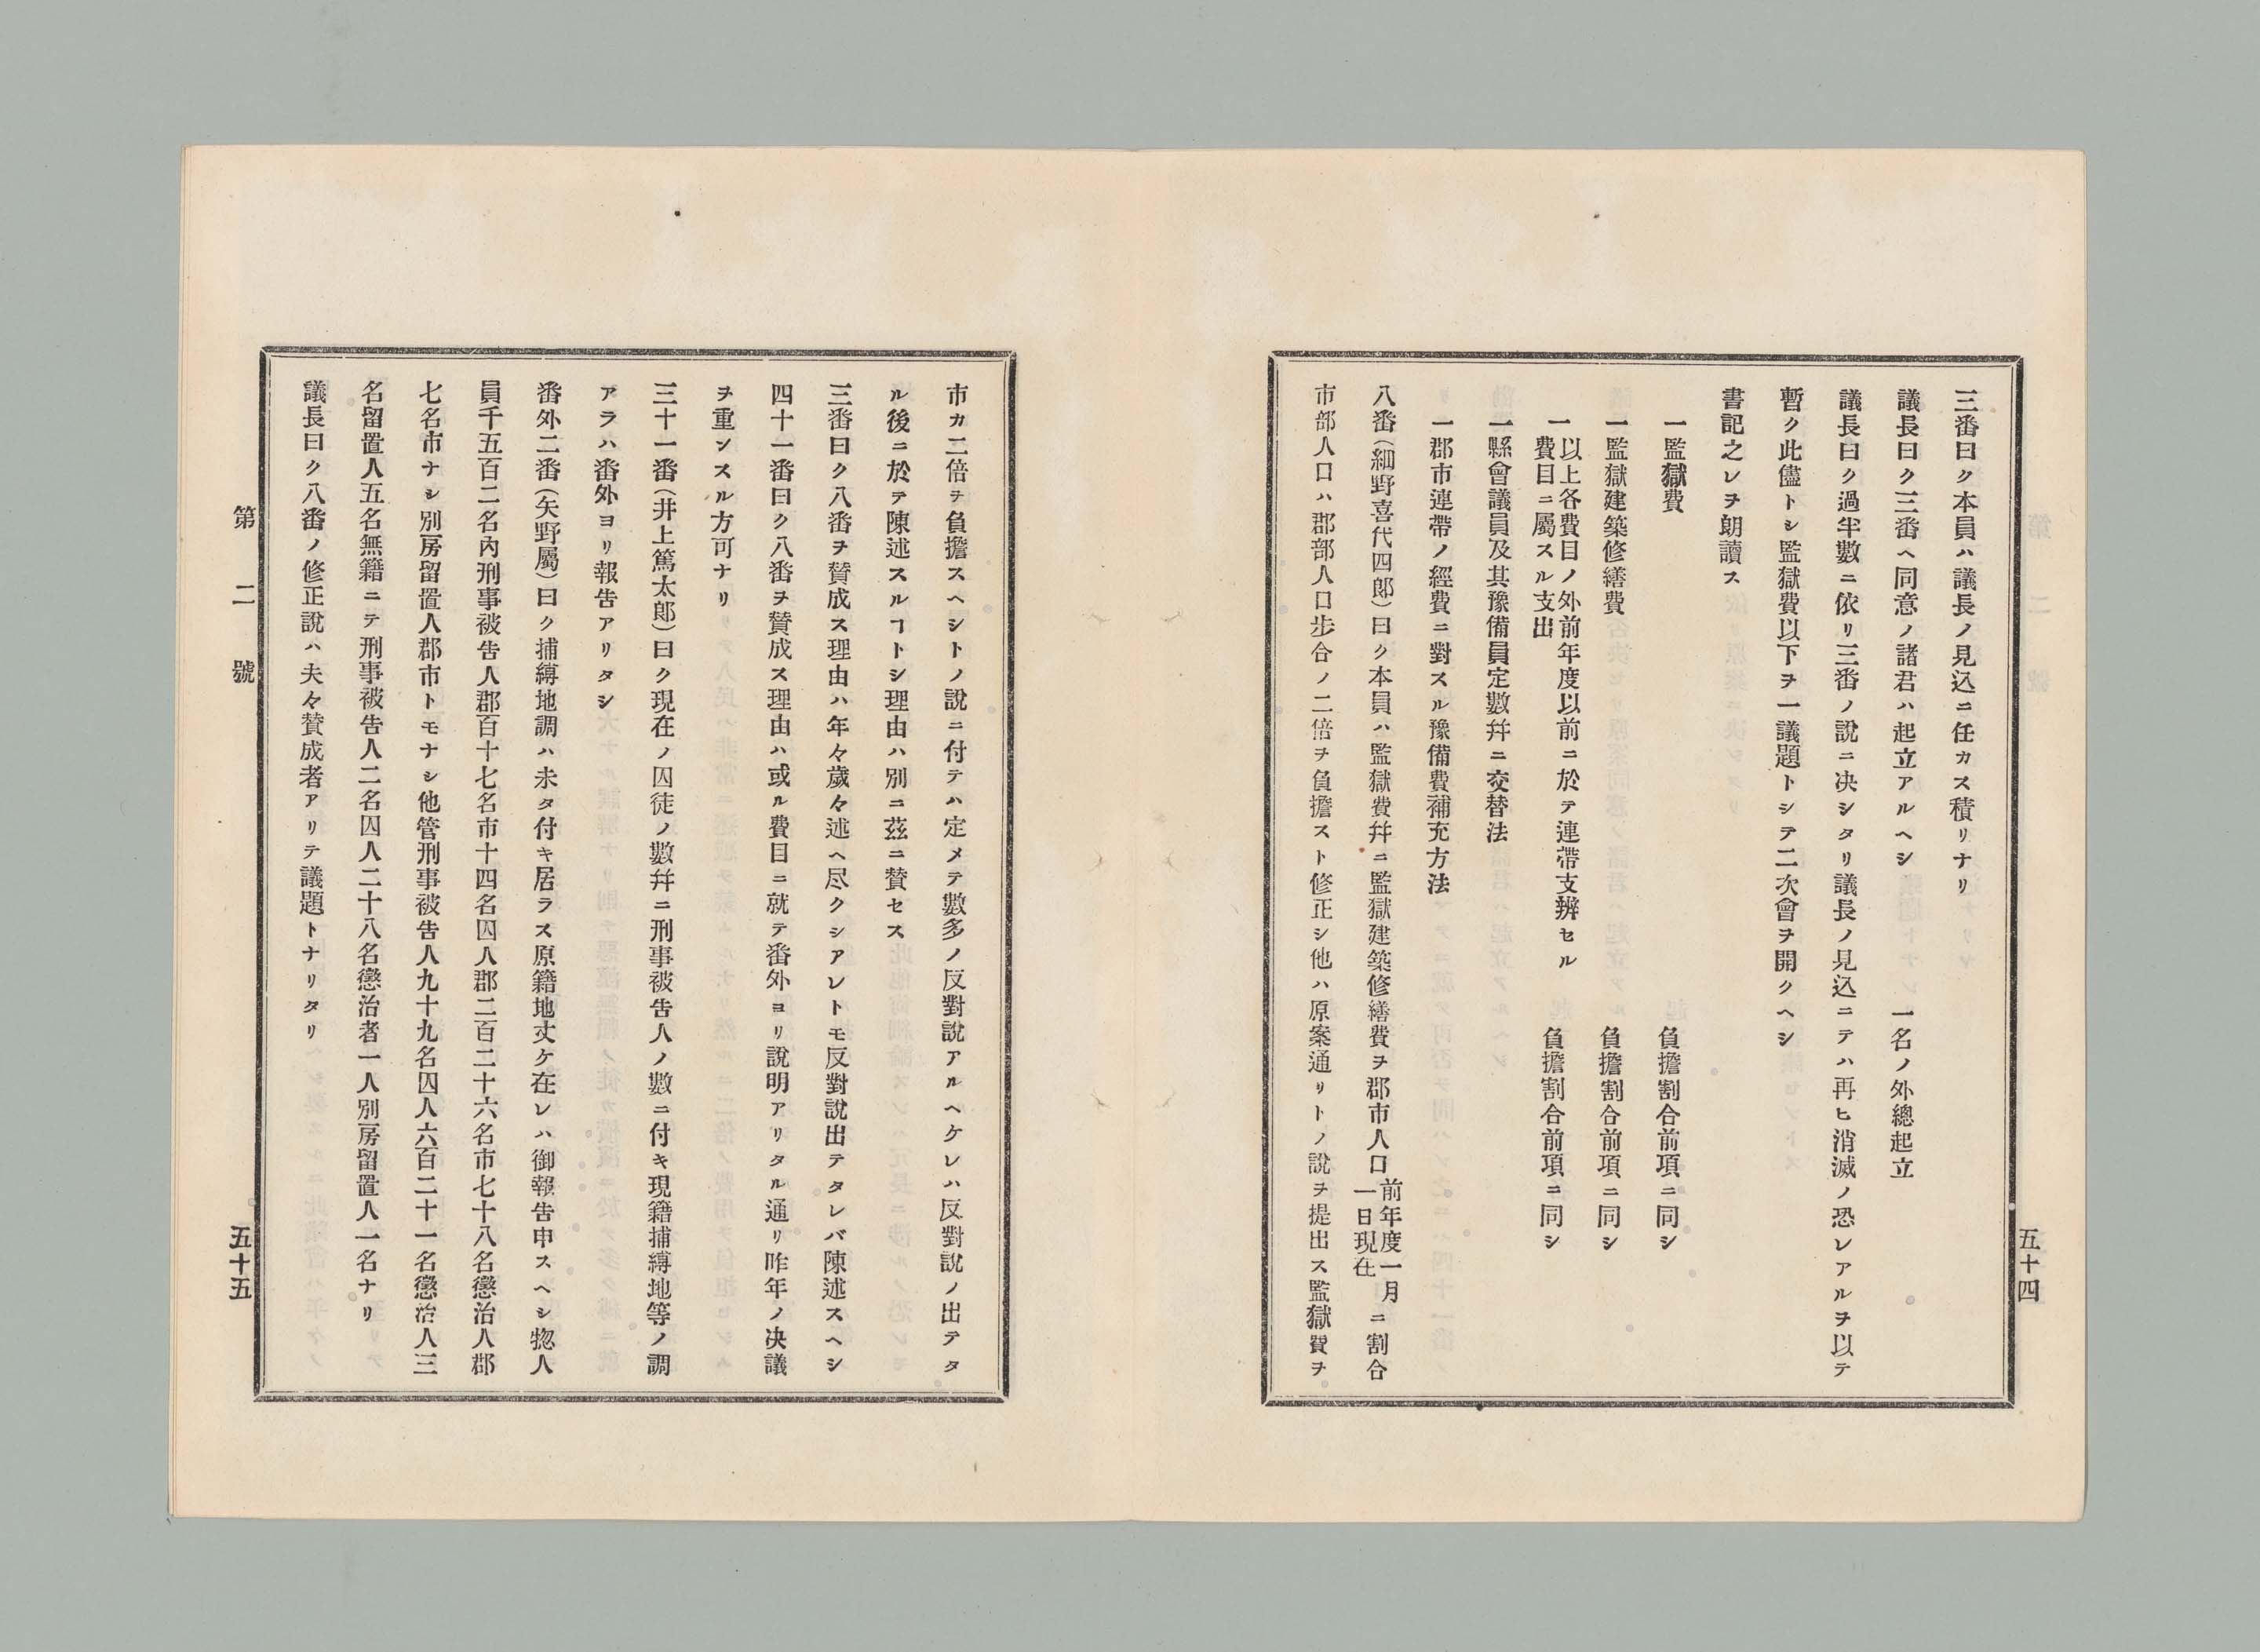 三番曰ク本員ハ議長ノ見込ニ任カス積リナリ
議長曰ク三番ヘ同意ノ諸君ハ起立アルヘシ　一名ノ外總起立
議長曰ク過半數ニ依リ三番ノ說ニ决シタリ議長ノ見込ニテハ再ヒ消滅ノ恐レアルヲ以テ
暫ク此儘トシ監獄費以下ヲ一議題トシテ二次會ヲ開クヘシ
書記之レヲ朗讀ス
一監獄費　負擔割合前項ニ同シ
一監獄建築修繕費　負擔割合前項ニ同シ
一以上各費目ノ外前年度以前ニ於テ連帶支辨セル
費目ニ屬スル支出　負擔割合前項ニ同シ
一縣會議員及其豫備員定數幷ニ交替法
一郡市連帶ノ經費ニ對スル豫備費補充方法
八番（細野喜代四郞）曰ク本員ハ監獄費幷ニ監獄建築修繕費ヲ郡市人口前年度一月一日現在ニ割合
市部人口ハ郡部人口步合ノ二倍ヲ負擔スト修正シ他ハ原案通リトノ說ヲ提出ス監獄費ヲ
五十四
市カ二倍ヲ負擔スヘシトノ說ニ付テハ定メテ數多ノ反對說アルヘケレハ反對說ノ出テタ
ル後ニ於テ陳述スルヿトシ理由ハ別ニ茲ニ賛セス
三番曰ク八番ヲ賛成ス理由ハ年々歲々述ヘ尽クシアレトモ反對說出テタレバ陳述スヘシ
四十一番曰ク八番ヲ賛成ス理由ハ或ル費目ニ就テ番外ヨリ說明アリタル通リ昨年ノ决議
ヲ重ンスル方可ナリ
三十一番（井上篤太郞）曰ク現在ノ囚徒ノ數幷ニ刑事被告人ノ數ニ付キ現籍捕縛地等ノ調
アラハ番外ヨリ報告アリタシ
番外二番（矢野屬）曰ク捕縛地調ハ未タ付キ居ラス原籍地丈ケ在レハ御報告申スヘシ惣人
員千五百二名內刑事被告人郡百十七名市十四名囚人郡二百二十六名市七十八名懲治人郡
七名市ナシ別房留置人郡市トモナシ他管刑事被告人九十九名囚人六百二十一名懲治人三
名留置人五名無籍ニテ刑事被告人二名囚人二十八名懲治者一人別房留置人一名ナリ
議長曰ク八番ノ修正說ハ夫々賛成者アリテ議題トナリタリ
第二號
五十五